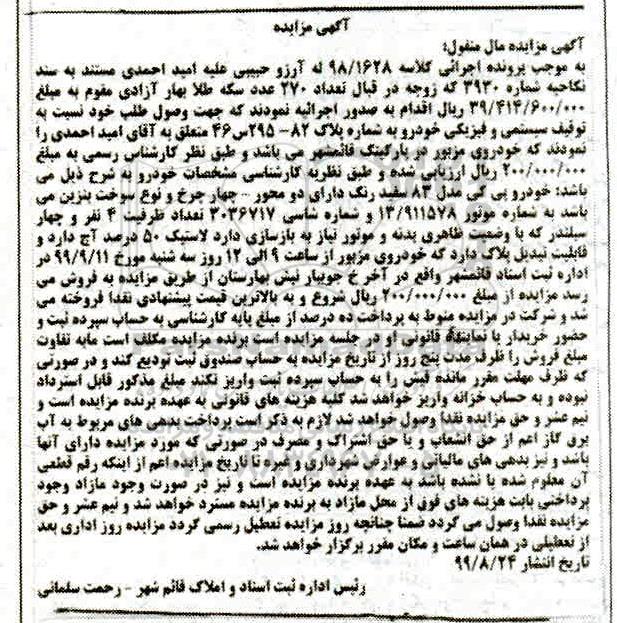 آگهی مزایده
آگهی مزایده مال منقول:
به موجب پرونده اجرائی کلاسه ۹۸/۱۶۲۸ له آرزو حبیبی علیه امید احمدی مستند به سند
نکاحیه شماره ۳۹۳۰ که زوجه در قبال تعداد ۲۷۰ عدد سکه طلا بهار آزادی مقوم به مبلغ
۳۹/۴۱۴/۶۰۰/۰۰۰ ریال اقدام به صدور اجرائیه نمودند که جهت وصول طلب خود نسبت به
توقیف سیستمی و فیزیکی خودرو به شماره پلاک ۸۲- ۲۹۵س۴۶ متعلق به آقای امید احمدی را
نمودند که خودروی مزبور در پارکینگ قائمشهر می باشد و طبق نظر کارشناس رسمی به مبلغ
۲۰۰/۰۰۰/۰۰۰ ریال ارزیابی شده و طبق نظریه کارشناسی مشخصات خودرو به شرح ذیل می
باشد: خودرو پی کی مدل ۸۳ سفید رنگ دارای دو محور - چهار چرخ و نوع سوخت بنزین می
باشد به شماره موتور ۱۳/۹۱۱۵۷۸ و شماره شاسی ۳۰۳۶۷۱۷ تعداد ظرفیت ۴ نفر و چهار
سیلندر که با وضعیت ظاهری بدنه و موتور نیاز به بازسازی دارد لاستیک ۵۰ درصد آج دارد و
قابلیت تبدیل پلاک دارد که خودروی مزبور از ساعت ۹ الی ۱۲ روز سه شنبه مورخ ۹۹/۹/۱۱ در
اداره ثبت اسناد قائمشهر واقع در آخر خ جویبار نبش بهارستان از طریق مزایده به فروش می
رسد مزایده از مبلغ ۲۰۰/۰۰۰/۰۰۰ ریال شروع و به بالاترین قیمت پیشنهادی نقدا فروخته می
شد و شرکت در مزایده منوط به پرداخت ده درصد از مبلغ پایه کارشناسی به حساب سپرده ثبت و
حضور خریدار یا نماینده قانونی او در جلسه مزایده است برنده مزایده مکلف است مابه تفاوت
مبلغ فروش را ظرف مدت پنج روز از تاریخ مزایده به حساب صندوق ثبت تودیع کند و در صورتی
که ظرف مهلت مقرر مانده فیش را به حساب سپرده ثبت واریز نکند مبلغ مذکور قابل استرداد
نبوده و به حساب خزانه واریز خواهد شد کلیه هزینه های قانونی به عهده برنده مزایده است و
نیم عشر و حق مزایده نقدا وصول خواهد شد لازم به ذکر است پرداخت بدهی های مربوط به آب
برق گاز اعم از حق انشعاب و یا حق اشتراک و مصرف در صورتی که مورد مزایده دارای آنها
باشد و نیز بدهی های مالیاتی و عوارض شهرداری و غیره تا تاریخ مزایده اعم از اینکه رقم قطعی
آن معلوم شده یا نشده باشد به عهده برنده مزایده است و نیز در صورت وجود مازاد وجود
پرداختی بابت هزینه های فوق از محل مازاد به برنده مزایده مسترد خواهد شد و نیم عشر و حق
مزایده نقدا وصول می گردد ضمنا چنانچه روز مزایده تعطیل رسمی گردد مزایده روز اداری بعد
از تعطیلی در همان ساعت و مکان مقرر برگزار خواهد شد.
تاریخ انتشار ۹۹/۸/۲۴
رئیس اداره ثبت اسناد و املاک قائم شهر - رحمت سلمانی